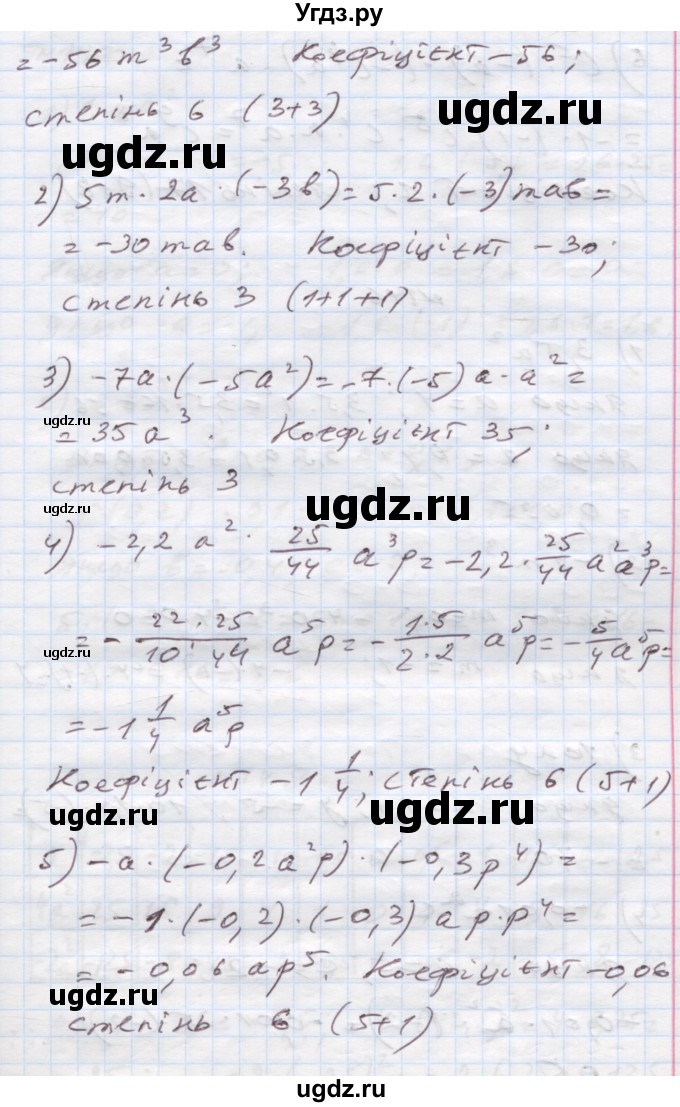 Угдз.ру
= -56 m³b³. Коефіцієнт -56;
ugdz.ru
степінь 6 (3+3)
ugdz.ru
2) 5m · 2a · (-3b) = 5 · 2 · (-3) mab =
= -30 mab. Коефіцієнт -30;
степінь 3 (1+1+1)
3) -7a · (-5a²) = -7 · (-5) a · a² =
ugdz.ru
= 35 a³. Коефіцієнт 35;
степінь 3
ugdz.ru
4) -2,2 a² · 25/44 a³p = -2,2 · 25/44 a² a³p =
ugdz.ru
= - 22·25/10·44 a⁵p = - 1·5/2·2 a⁵p = - 5/4 a⁵p =
= -1 1/4 a⁵p
Коефіцієнт -1 1/4; степінь 6 (5+1)
ugdz.ru ugdz.ru
5) -a · (-0,2a²p) · (-0,3p⁴) =
= -1 · (-0,2) · (-0,3) a p · p⁴ =
= -0,06 ap⁵. Коефіцієнт -0,06
ugdz.ru
степінь 6 (5+1)
ugdz.ru